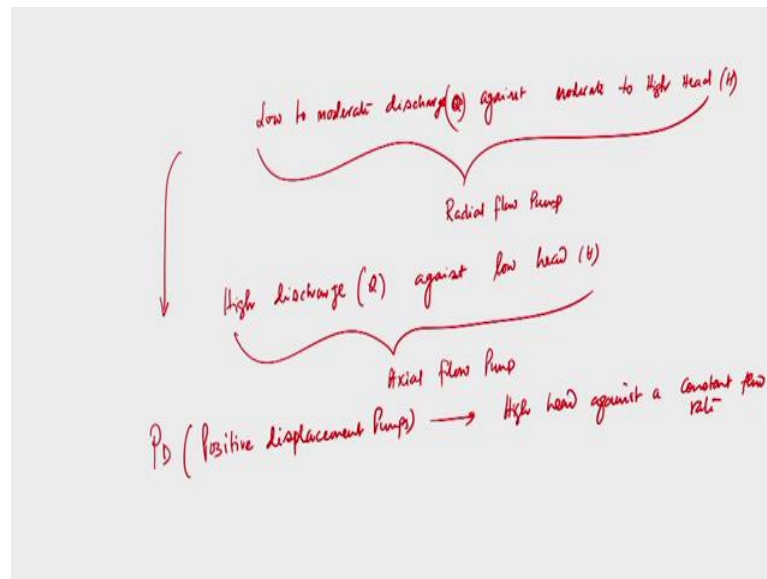 Low to moderate discharge (Q) against moderate to High Head (H)
Radial flow Pump
High discharge (Q) against low head (H)
Axial flow Pump
PD (Positive displacement Pumps) → High head against a constant flow
rate